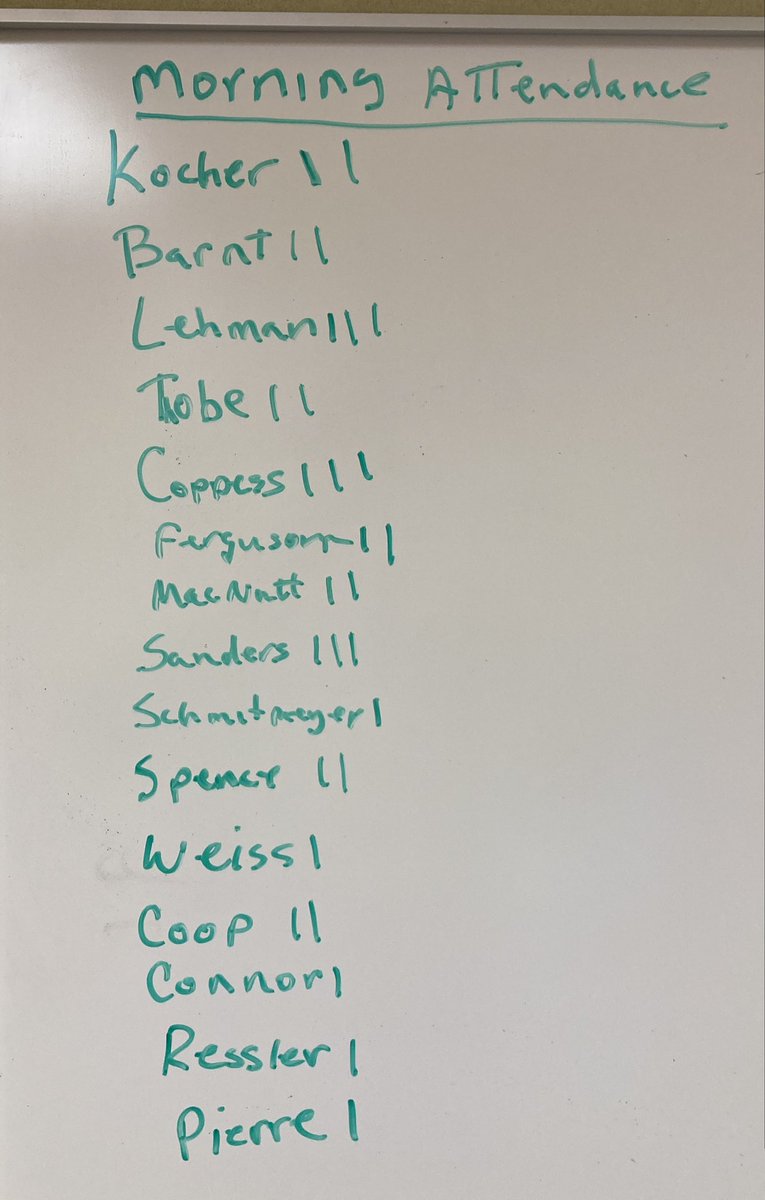 Morning Attendance
Kocher ||
Barnt ||
Lehman |||
Tobe ||
Coppess |||
Ferguson ||
MacNutt ||
Sanders |||
Schmitmeyer |
Spencer ||
Weiss |
Coop ||
Connor |
Ressler |
Pierre |